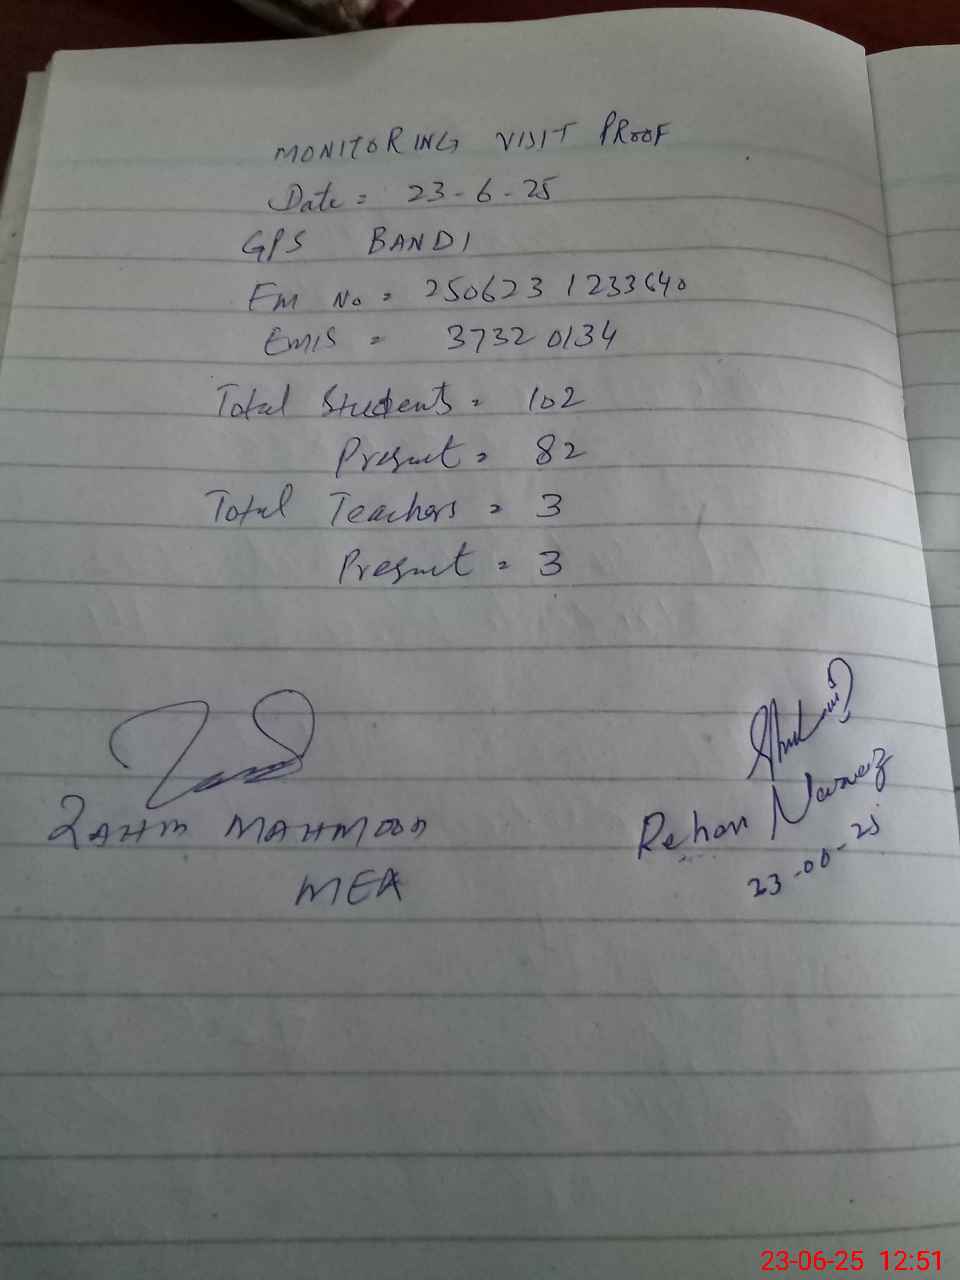 MONITORING VISIT PROOF
Date = 23-6-25
GPS BANDI
Em No = 2506231233640
EMIS = 37320134
Total Students = 102
Present = 82
Total Teachers = 3
Present = 3
MAHMOOD
MEA
Rehan Nawaz
23-06-25
23-06-25 12:51